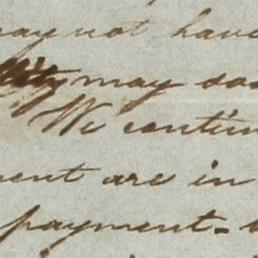 ay not have
may soo
We contin
ent are in
payment-